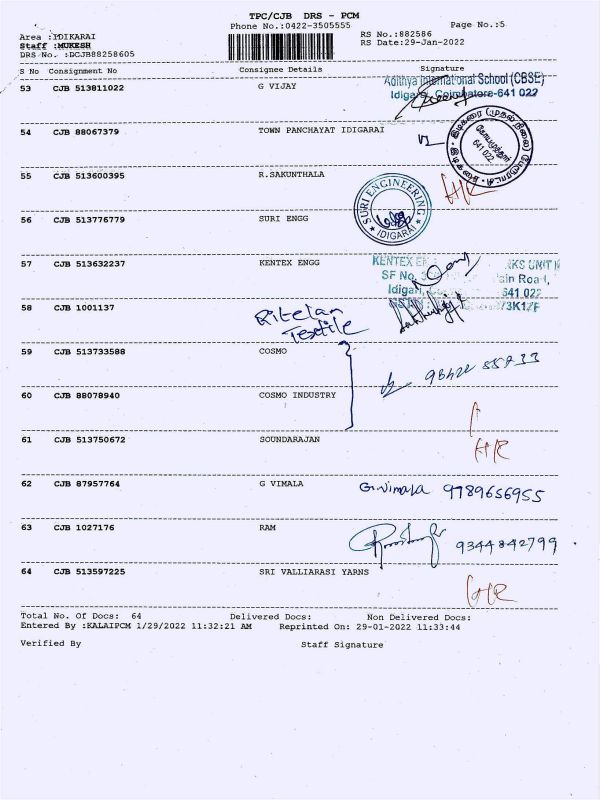 TPC/CJB DRS - PCM
Phone No.:0422-3505555
Page No.:5
Area :IDIKARAI
Staff :MUKESH
DRS No. :DCJB88258605
RS No.:882586
RS Date:29-Jan-2022
S No Consignment No Consignee Details Signature
53 CJB 513811022 G VIJAY
Adithya International School (CBSE)
Coimbatore-641 022
54 CJB 88067379 TOWN PANCHAYAT IDIGARAI
641 022
55 CJB 513600395 R.SAKUNTHALA
SURI ENGINEERING
IDIGARAI
56 CJB 513776779 SURI ENGG
57 CJB 513632237 KENTEX ENGG
KENTEX UNIT
SF No.
641 022
58 CJB 1001137
Textile
59 CJB 513733588 COSMO
60 CJB 88078940 COSMO INDUSTRY
61 CJB 513750672 SOUNDARAJAN
62 CJB 87957764 G VIMALA
G.Vimala 9789656955
63 CJB 1027176 RAM
9344842799
64 CJB 513597225 SRI VALLIARASI YARNS
Total No. Of Docs: 64 Delivered Docs: Non Delivered Docs:
Entered By :KALAIPCM 1/29/2022 11:32:21 AM Reprinted On: 29-01-2022 11:33:44
Verified By Staff Signature